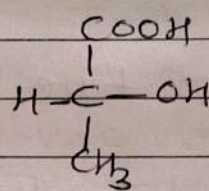 COOH
H-C-OH
CH3